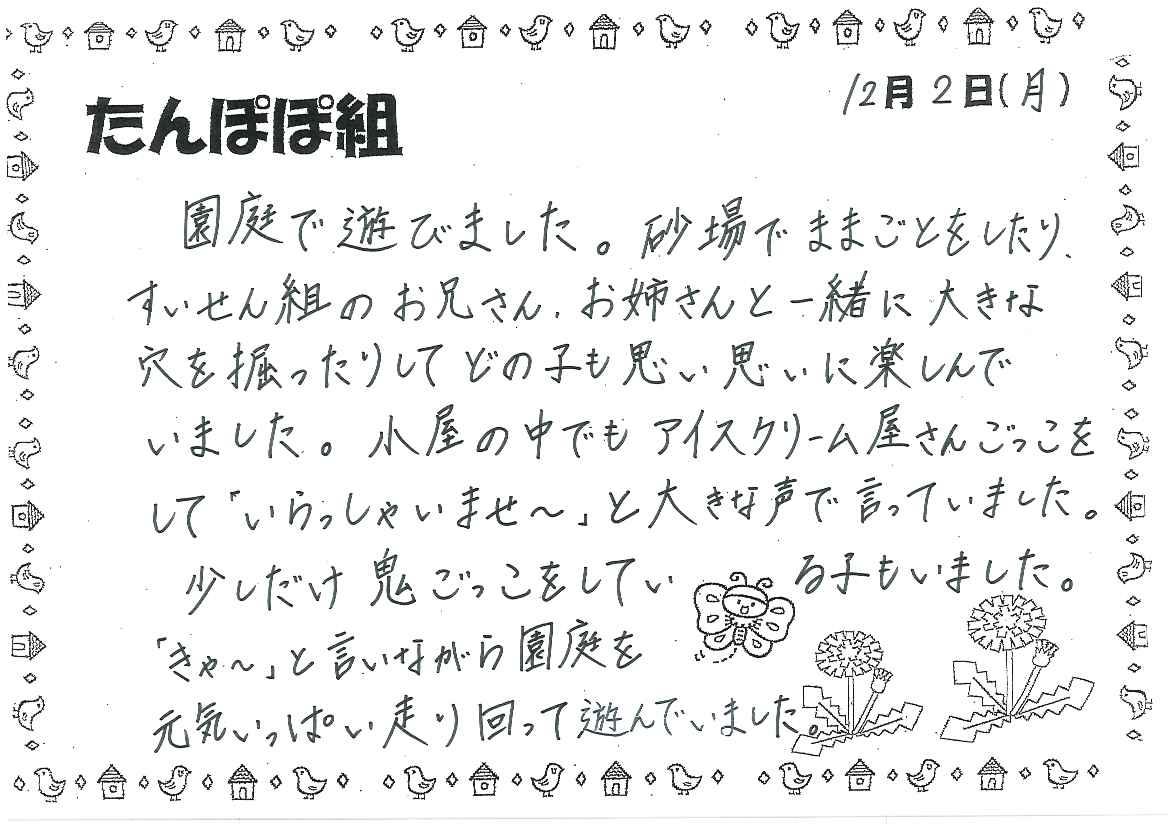 たんぽぽ組
12月2日(月)
園庭で遊びました。砂場でままごとをしたり、
すいせん組のお兄さん、お姉さんと一緒に大きな
穴を掘ったりしてどの子も思い思いに楽しんで
いました。小屋の中でもアイスクリーム屋さんごっこを
して「いらっしゃいませ〜」と大きな声で言っていました。
少しだけ鬼ごっこをしている子もいました。
「きゃ〜」と言いながら園庭を
元気いっぱい走り回って遊んでいました。